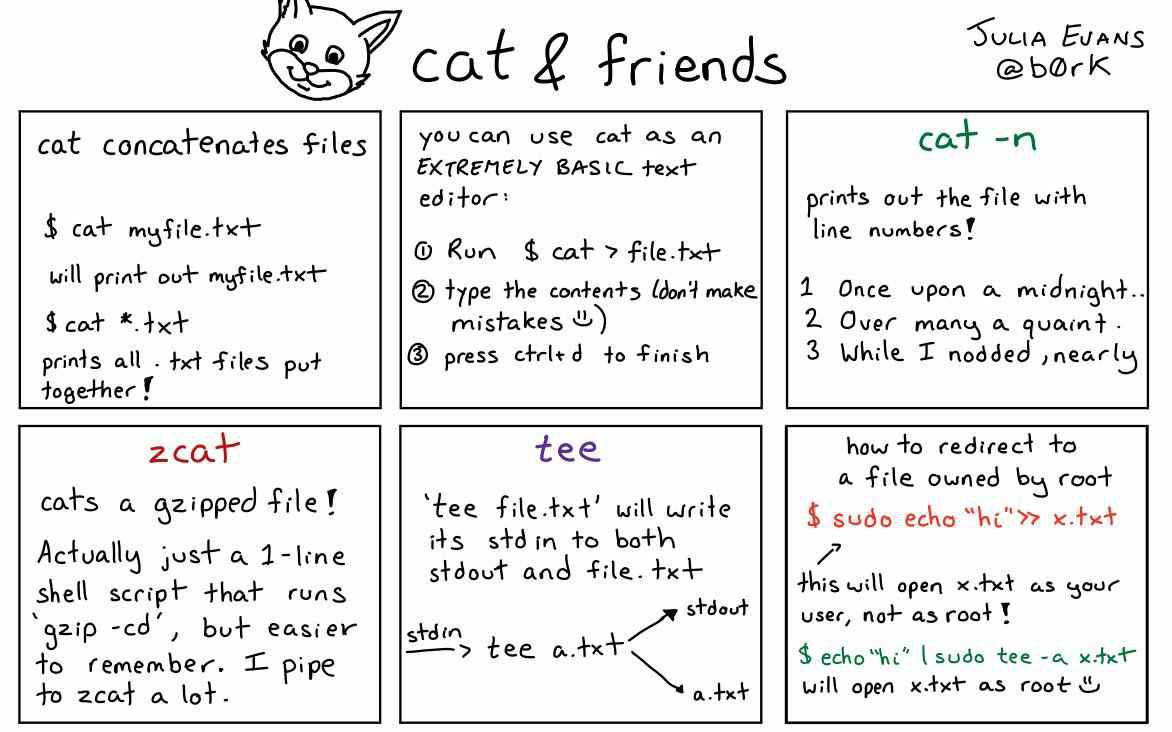 cat & friends
JULIA EVANS
@b0rk
cat concatenates files
$ cat myfile.txt
will print out myfile.txt
$ cat *.txt
prints all .txt files put
together!
you can use cat as an
EXTREMELY BASIC text
editor:
① Run $ cat > file.txt
② type the contents (don't make
mistakes ☺)
③ press ctrl+d to finish
cat -n
prints out the file with
line numbers!
1 Once upon a midnight..
2 Over many a quaint.
3 While I nodded, nearly
zcat
cats a gzipped file!
Actually just a 1-line
shell script that runs
`gzip -cd', but easier
to remember. I pipe
to zcat a lot.
tee
'tee file.txt' will write
its stdin to both
stdout and file.txt
stdin
tee a.txt
stdout
a.txt
how to redirect to
a file owned by root
$ sudo echo "hi" >> x.txt
this will open x.txt as your
user, not as root!
$ echo "hi" | sudo tee -a x.txt
will open x.txt as root ☺